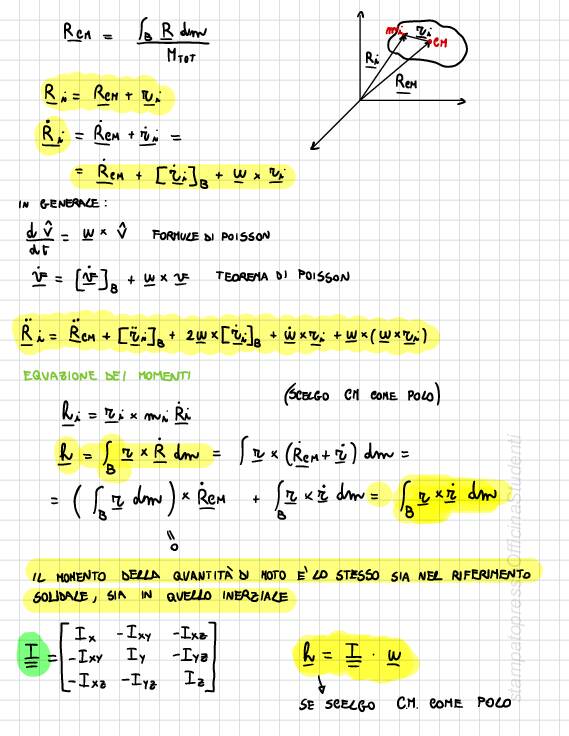 R_CM = ∫_B R dm / M_TOT
m_i r_i CM
R_i R_CM
R_i = R_CM + r_i
Ṙ_i = Ṙ_CM + ṙ_i =
= Ṙ_CM + [ṙ_i]_B + w × r_i
IN GENERALE:
d v̂ / dt = w × v̂ FORMULE DI POISSON
v̇ = [v̇]_B + w × v TEOREMA DI POISSON
R̈_i = R̈_CM + [r̈_i]_B + 2w × [ṙ_i]_B + ẇ × r_i + w × (w × r_i)
EQUAZIONE DEI MOMENTI
(SCELGO CM COME POLO)
h_i = r_i × m_i Ṙ_i
h = ∫_B r × Ṙ dm = ∫ r × (Ṙ_CM + ṙ) dm =
= (∫_B r dm) × Ṙ_CM + ∫_B r × ṙ dm = ∫_B r × ṙ dm
= 0
IL MOMENTO DELLA QUANTITÀ DI MOTO E' LO STESSO SIA NEL RIFERIMENTO
SOLIDALE, SIA IN QUELLO INERZIALE
I = [I_x -I_xy -I_xz
-I_xy I_y -I_yz
-I_xz -I_yz I_z]
h = I · w
SE SCELGO C.M. COME POLO
stampatopressoOfficinaStudenti